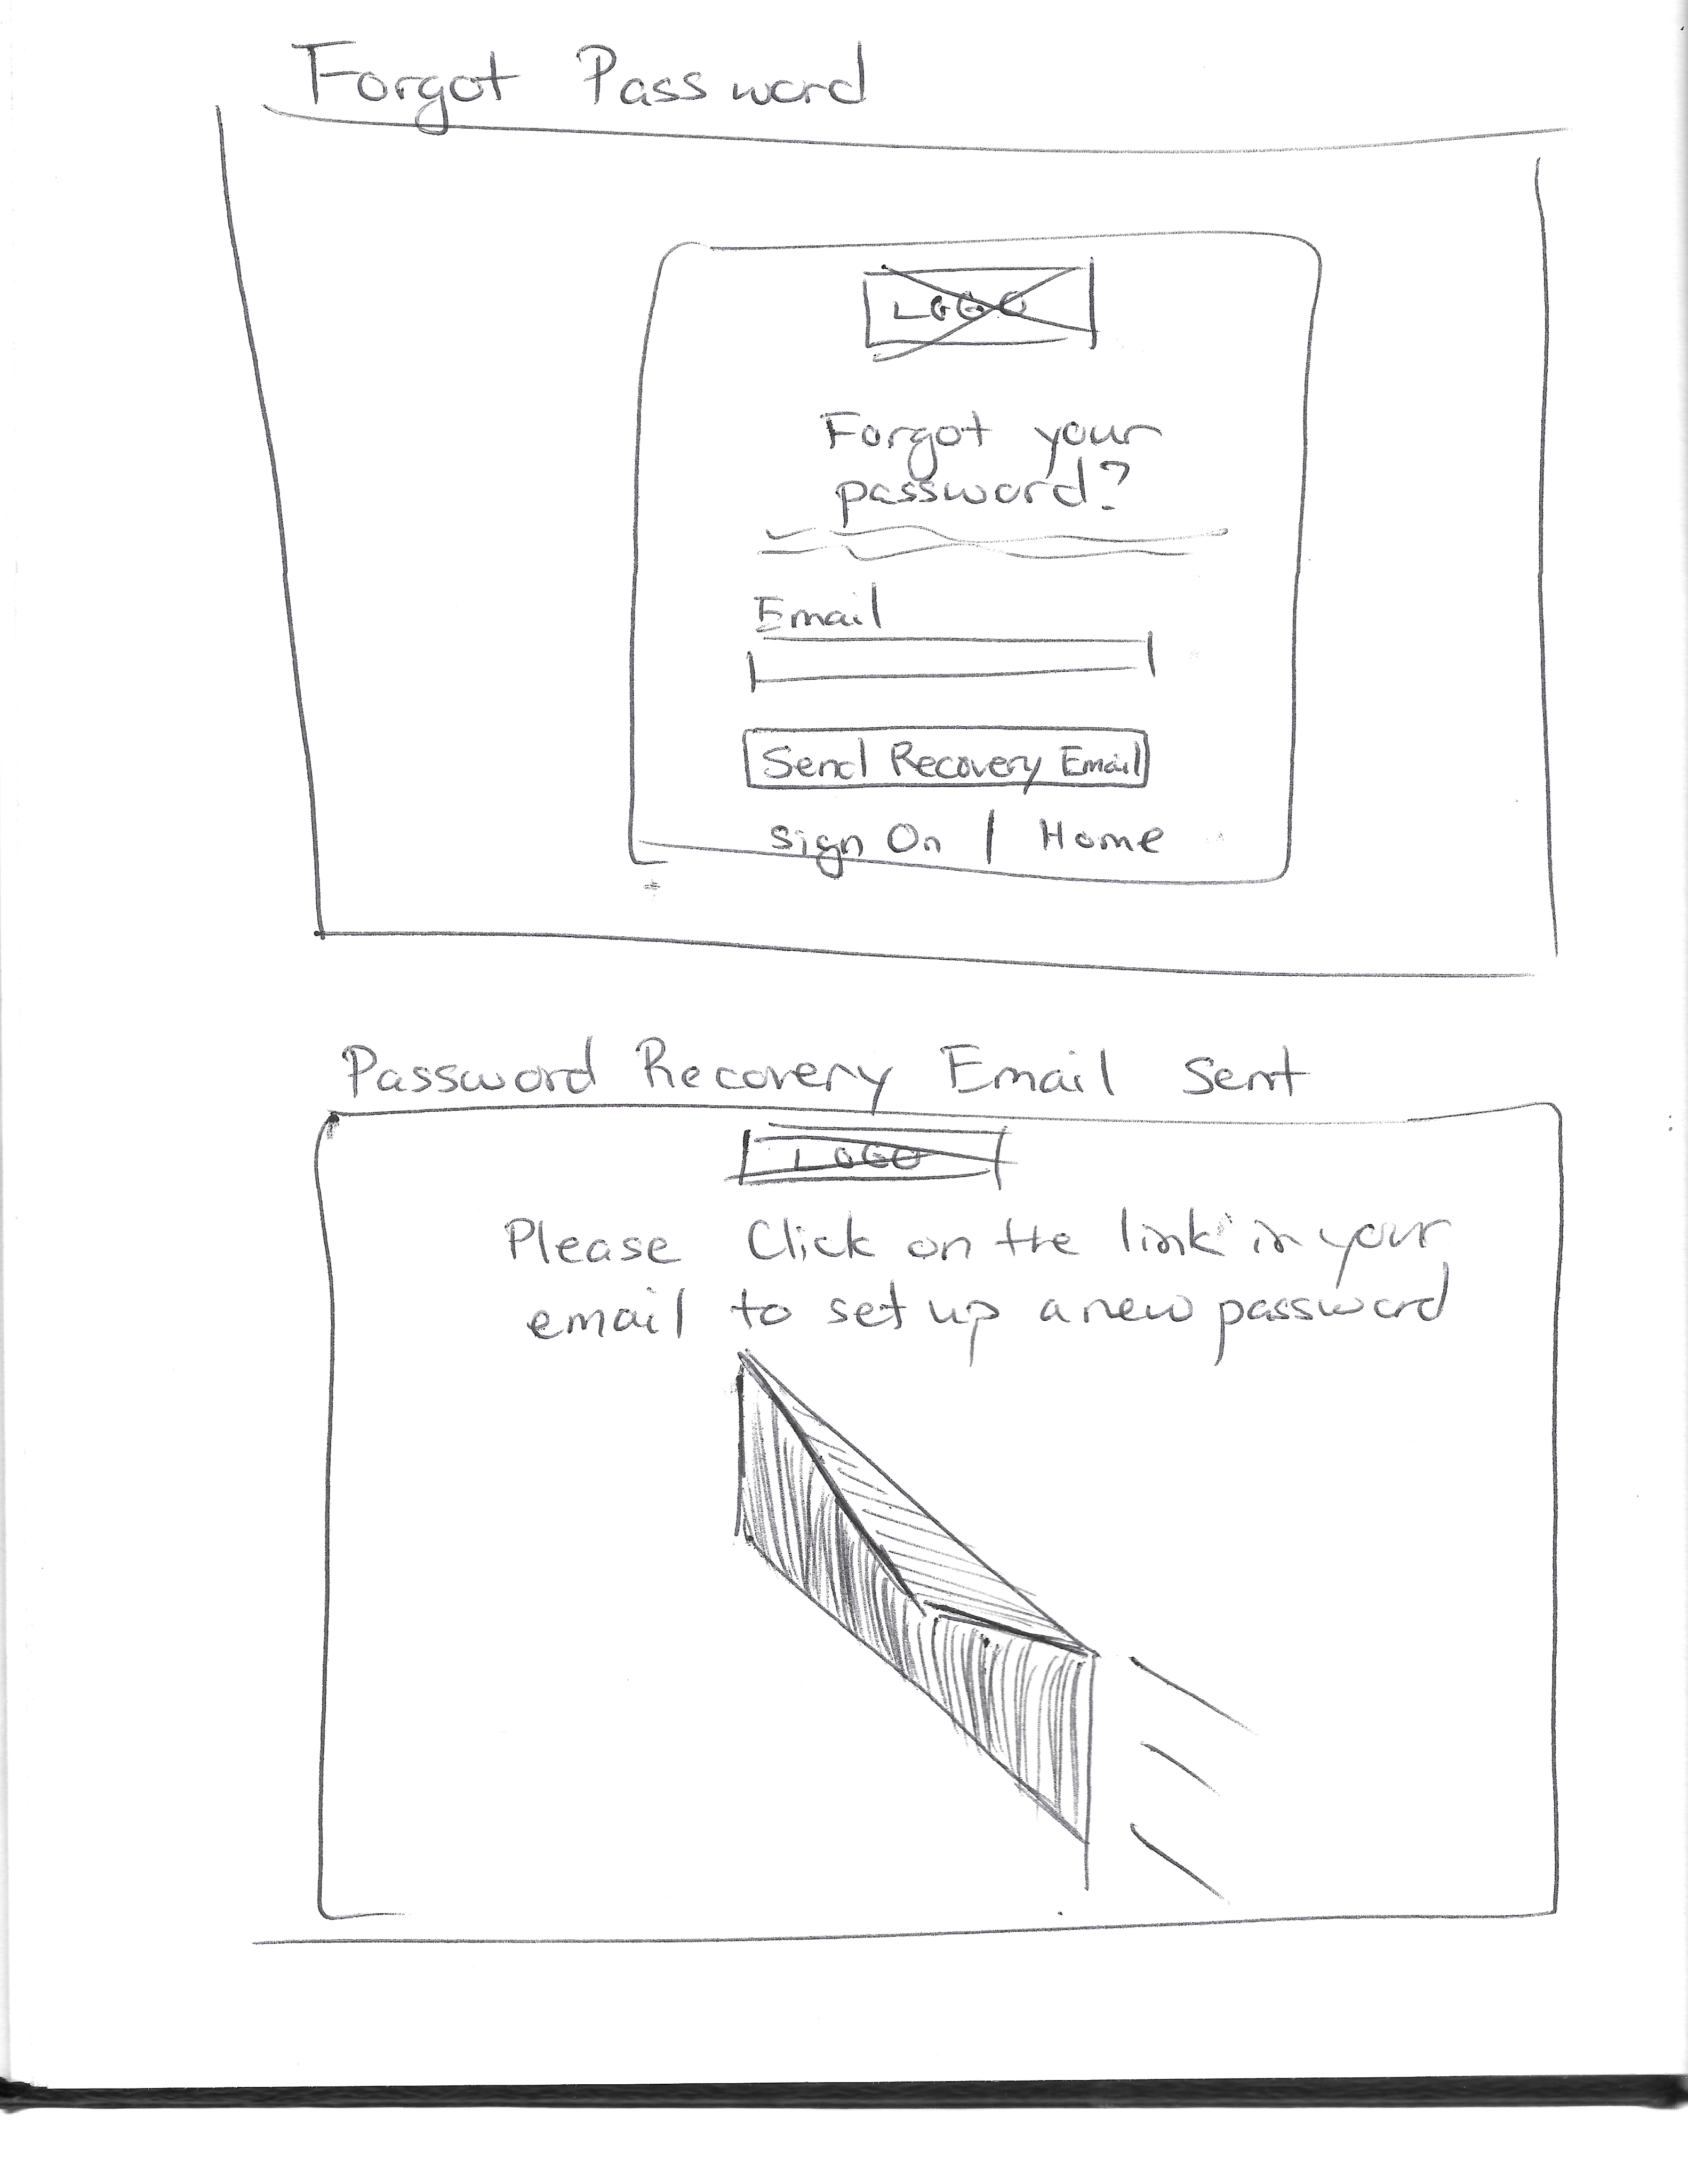 Forgot Password
LOGO
Forgot your
password?
Email
Send Recovery Email
Sign On | Home
Password Recovery Email Sent
LOGO
Please Click on the link in your
email to set up a new password